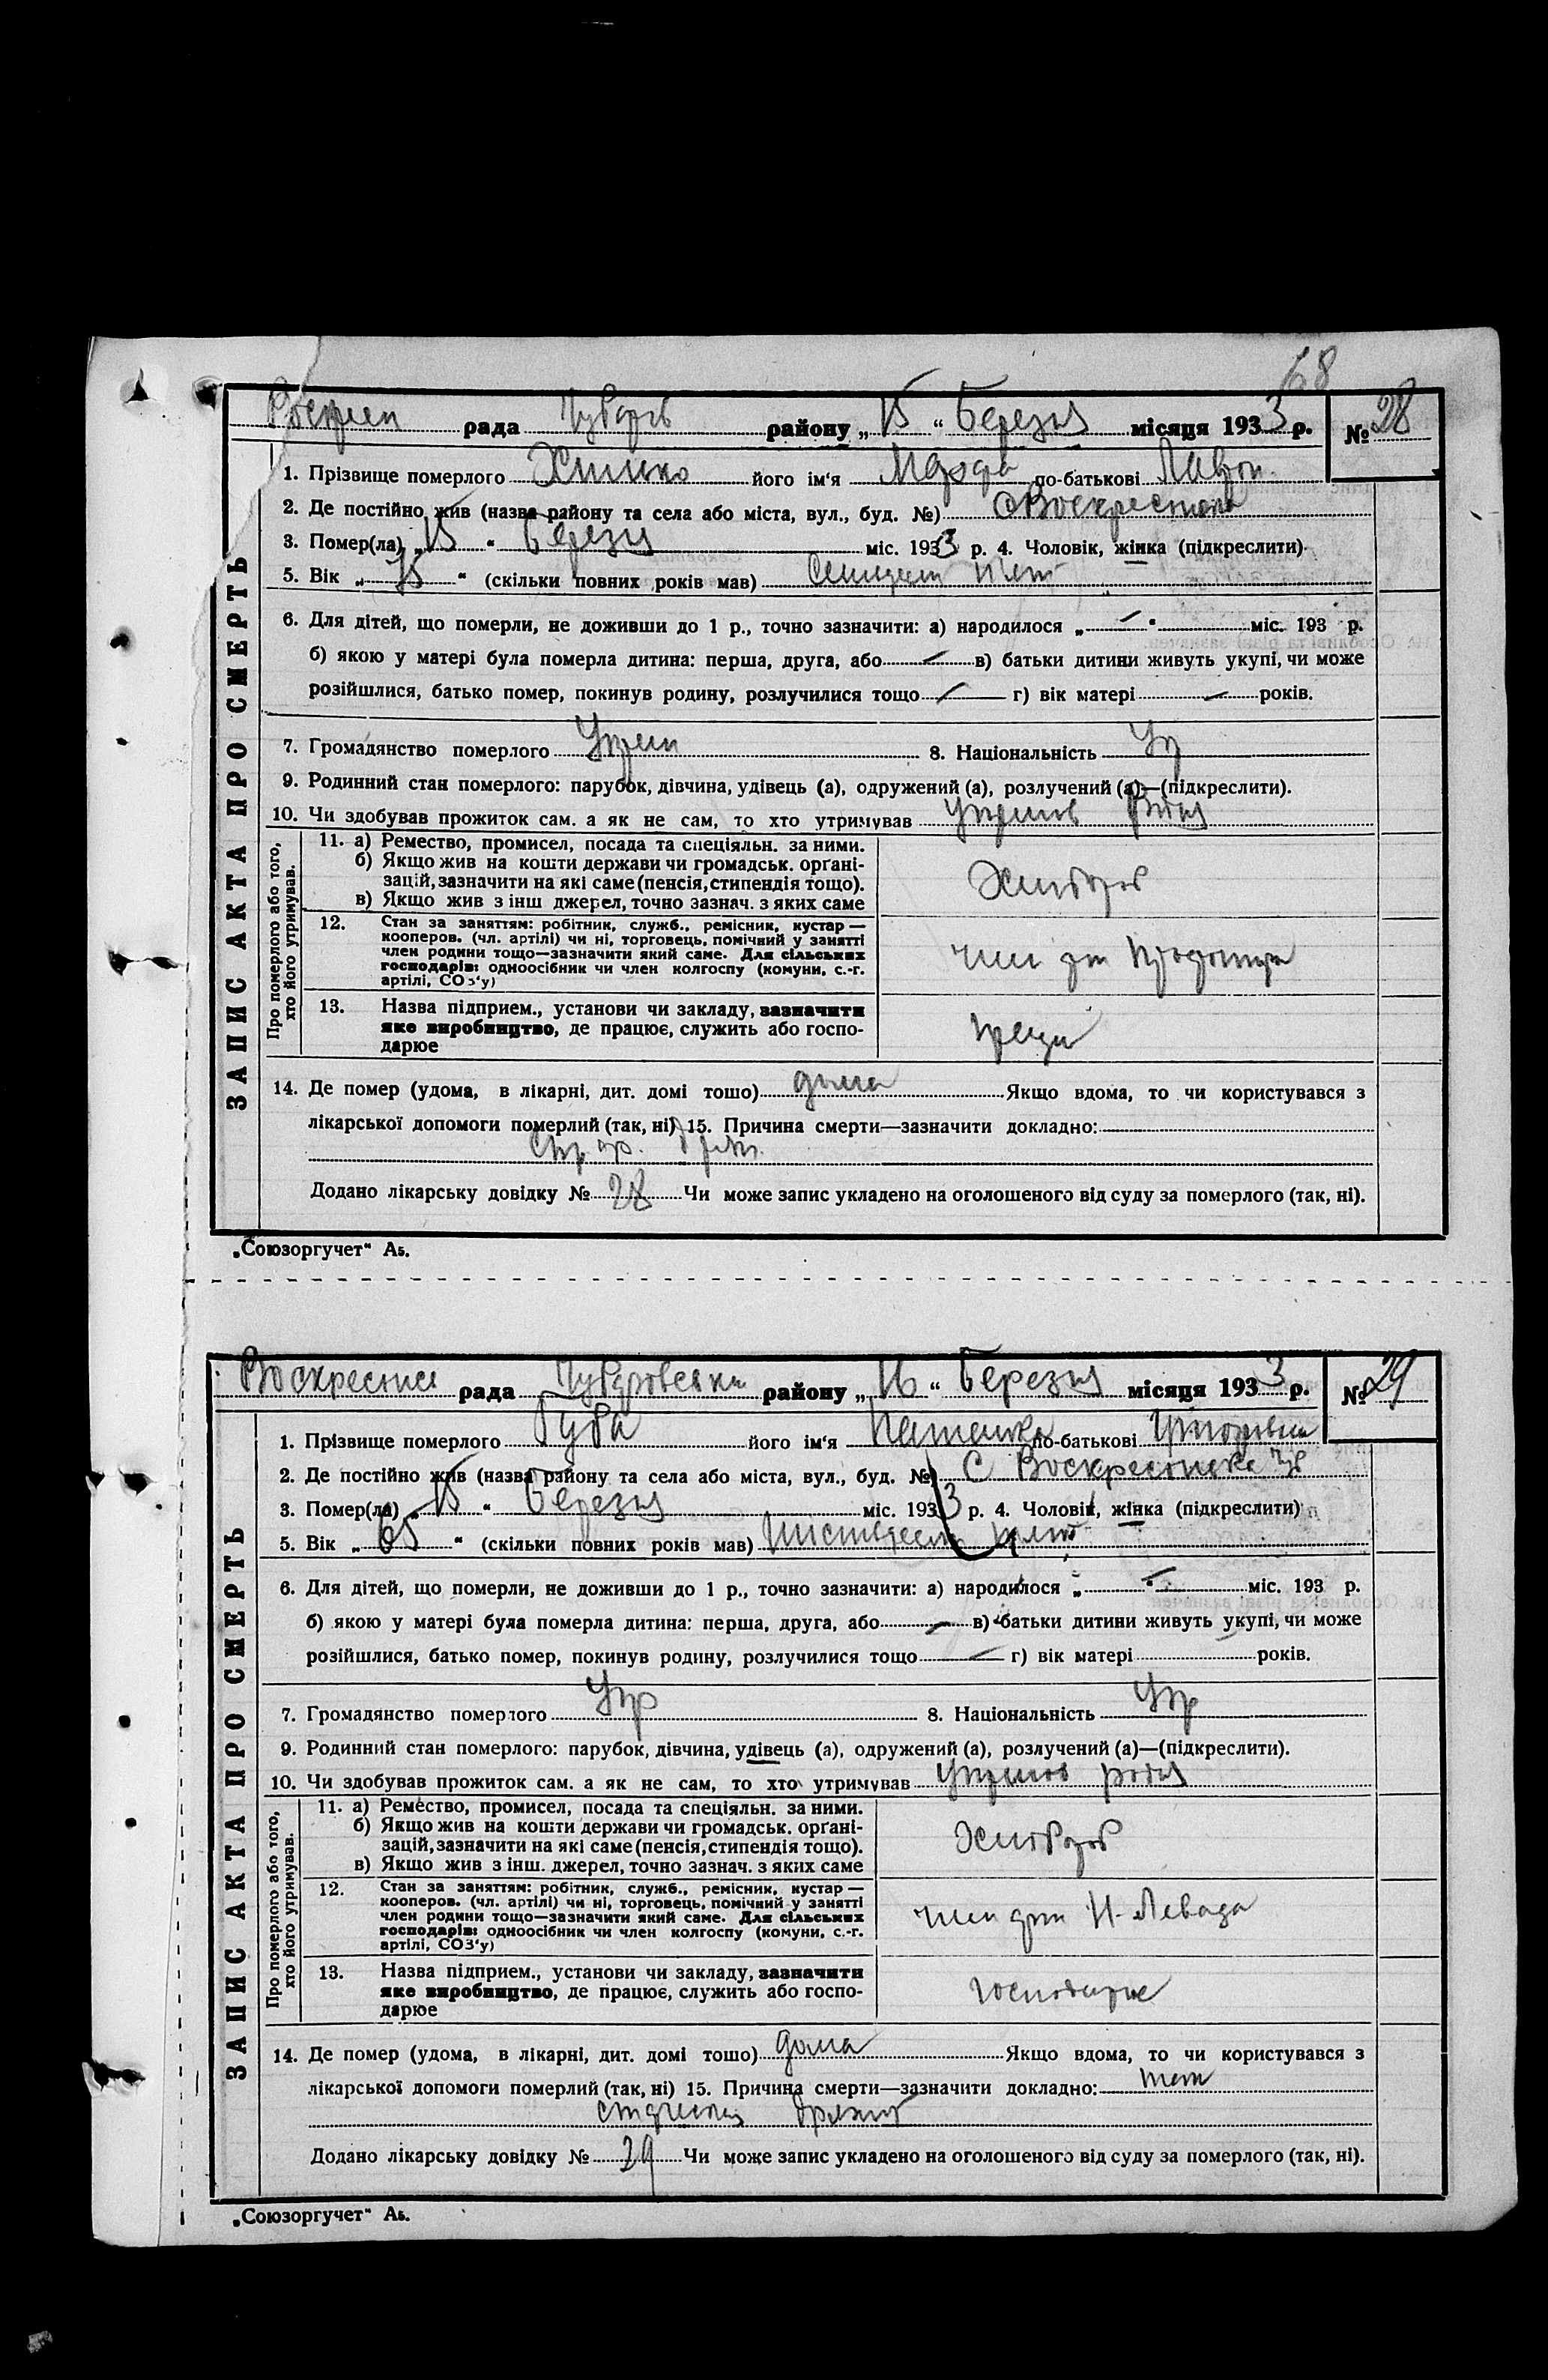 68
рада району „15“ Березня місяця 1933 р. № 28
ЗАПИС АКТА ПРО СМЕРТЬ
1. Прізвище померлого його ім‘я по-батькові
2. Де постійно жив (назва району та села або міста, вул., буд. №)
3. Помер(ла) „15“ Березня міс. 1933 р. 4. Чоловік, жінка (підкреслити)
5. Вік „ “ (скільки повних років мав)
6. Для дітей, що померли, не доживши до 1 р., точно зазначити: а) народилося „ “ міс. 193 р.
б) якою у матері була померла дитина: перша, друга, або в) батьки дитини живуть укупі, чи може
розійшлися, батько помер, покинув родину, розлучилися тощо г) вік матері років.
7. Громадянство померлого 8. Національність Ук
9. Родинний стан померлого: парубок, дівчина, удівець (а), одружений (а), розлучений (а)—(підкреслити).
10. Чи здобував прожиток сам. а як не сам, то хто утримував
Про померлого або того, хто його утримував.
11. а) Ремество, промисел, посада та спеціяльн. за ними.
б) Якщо жив на кошти держави чи громадськ. орґані-
зацій, зазначити на які саме (пенсія, стипендія тощо).
в) Якщо жив з інш джерел, точно зазнач. з яких саме
Хлібороб
12. Стан за заняттям: робітник, служб., ремісник, кустар —
кооперов. (чл. артілі) чи ні, торговець, помічний у занятті
член родини тощо—зазначити який саме. Для сільських
господарів: одноосібник чи член колгоспу (комуни, с.-г.
артілі, СОЗ‘у)
13. Назва підприєм., установи чи закладу, зазначити
яке виробництво, де працює, служить або госпо-
дарює
14. Де помер (удома, в лікарні, дит. домі тошо) дома Якщо вдома, то чи користувався з
лікарської допомоги померлий (так, ні) 15. Причина смерти—зазначити докладно:
Додано лікарську довідку № 28 Чи може запис укладено на оголошеного від суду за померлого (так, ні).
„Союзоргучет“ А5.
рада району „16“ Березня місяця 1933 р. № 29
ЗАПИС АКТА ПРО СМЕРТЬ
1. Прізвище померлого Губа його ім‘я по-батькові Григорівна
2. Де постійно жив (назва району та села або міста, вул., буд. №) С Воскресенська
3. Помер(ла) „15“ Березня міс. 1933 р. 4. Чоловік, жінка (підкреслити)
5. Вік „65“ (скільки повних років мав)
6. Для дітей, що померли, не доживши до 1 р., точно зазначити: а) народилося „ “ міс. 193 р.
б) якою у матері була померла дитина: перша, друга, або в) батьки дитини живуть укупі, чи може
розійшлися, батько помер, покинув родину, розлучилися тощо г) вік матері років.
7. Громадянство померлого Укр 8. Національність Укр
9. Родинний стан померлого: парубок, дівчина, удівець (а), одружений (а), розлучений (а)—(підкреслити).
10. Чи здобував прожиток сам. а як не сам, то хто утримував
Про померлого або того, хто його утримував.
11. а) Ремество, промисел, посада та спеціяльн. за ними.
б) Якщо жив на кошти держави чи громадськ. орґані-
зацій, зазначити на які саме (пенсія, стипендія тощо).
в) Якщо жив з інш. джерел, точно зазнач. з яких саме
Хлібороб
12. Стан за заняттям: робітник, служб., ремісник, кустар —
кооперов. (чл. артілі) чи ні, торговець, помічний у занятті
член родини тощо—зазначити який саме. Для сільських
господарів: одноосібник чи член колгоспу (комуни, с.-г.
артілі, СОЗ‘у)
13. Назва підприєм., установи чи закладу, зазначити
яке виробництво, де працює, служить або госпо-
дарює
14. Де помер (удома, в лікарні, дит. домі тошо) дома Якщо вдома, то чи користувався з
лікарської допомоги померлий (так, ні) 15. Причина смерти—зазначити докладно:
Додано лікарську довідку № 29 Чи може запис укладено на оголошеного від суду за померлого (так, ні).
„Союзоргучет“ А5.